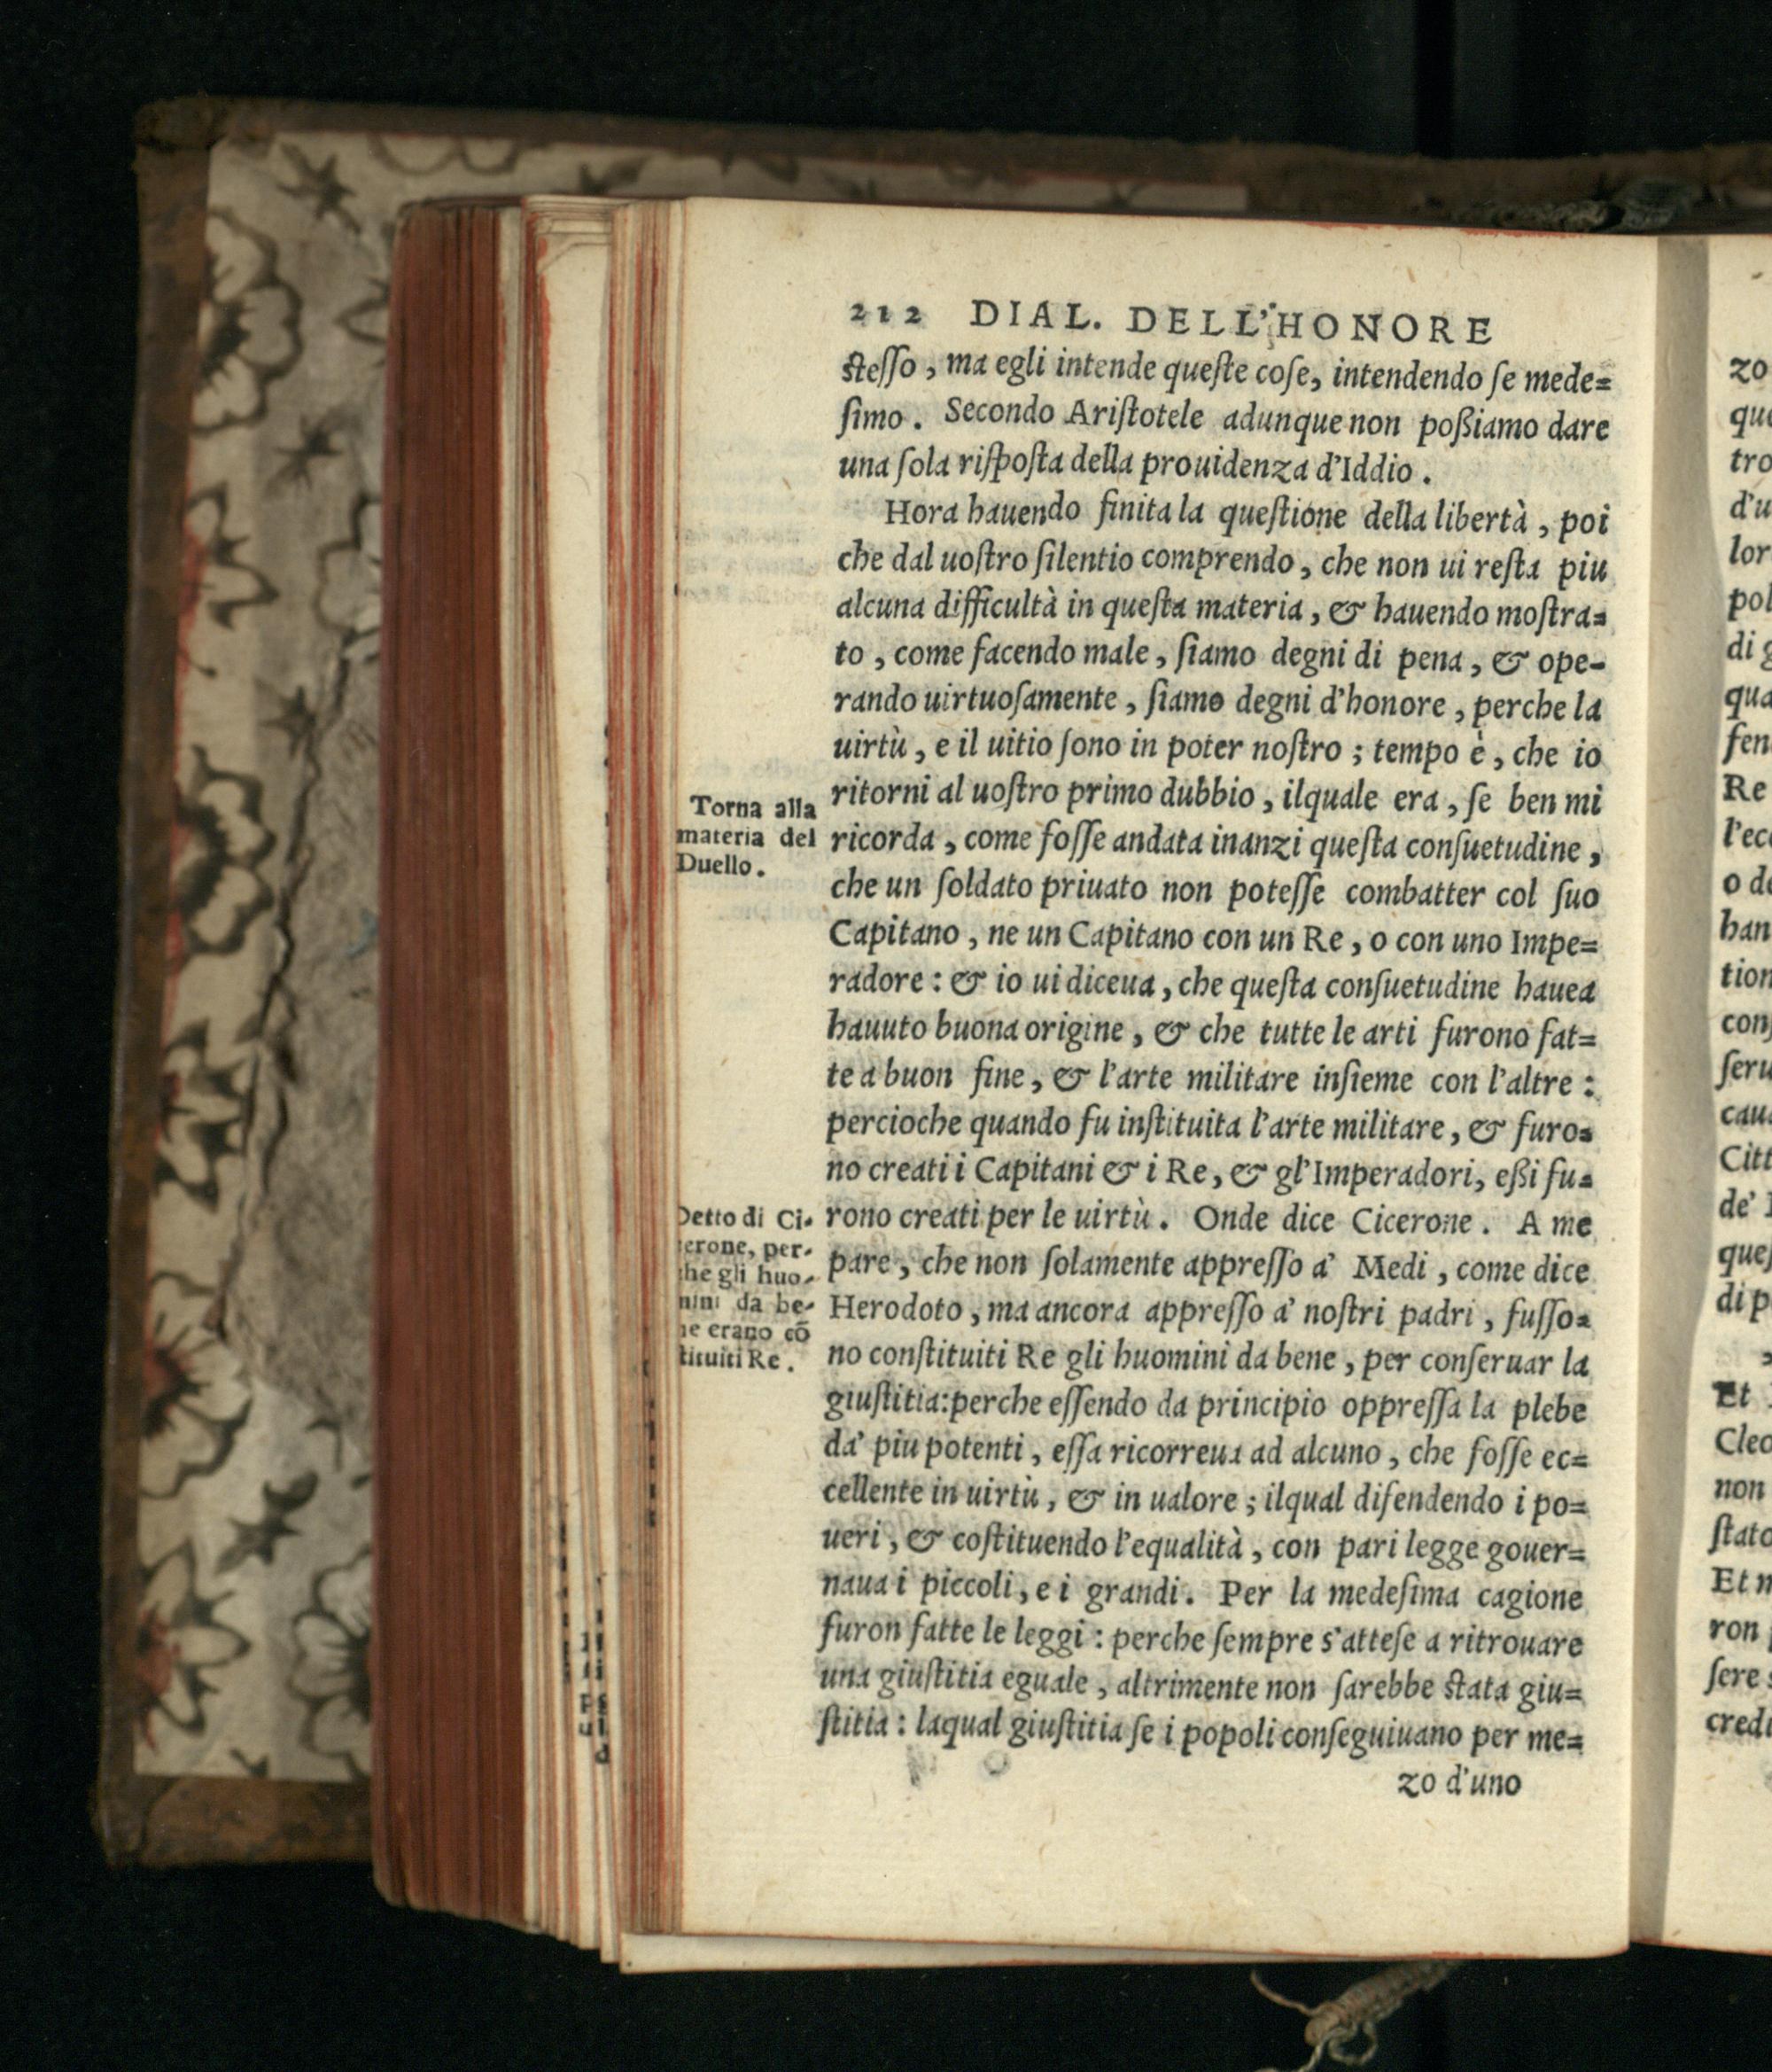 212 DIAL. DELL'HONORE
ſteſſo, ma egli intende queſte coſe, intendendo ſe mede=
ſimo. Secondo Ariſtotele adunque non poßiamo dare
una ſola riſpoſta della prouidenza d'Iddio.
Hora hauendo finita la queſtione della libertà, poi
che dal uoſtro ſilentio comprendo, che non ui reſta piu
alcuna difficultà in queſta materia, & hauendo moſtra=
to, come facendo male, ſiamo degni di pena, & ope-
rando uirtuoſamente, ſiamo degni d'honore, perche la
uirtù, e il uitio ſono in poter noſtro; tempo è, che io
ritorni al uoſtro primo dubbio, ilquale era, ſe ben mi
ricorda, come foſſe andata inanzi queſta conſuetudine,
che un ſoldato priuato non poteſſe combatter col ſuo
Capitano, ne un Capitano con un Re, o con uno Impe=
radore: & io ui diceua, che queſta conſuetudine hauea
hauuto buona origine, & che tutte le arti furono fat=
te a buon fine, & l'arte militare inſieme con l'altre:
percioche quando fu inſtituita l'arte militare, & furo=
no creati i Capitani & i Re, & gl'Imperadori, eßi fu=
rono creati per le uirtù. Onde dice Cicerone. A me
pare, che non ſolamente appreſſo a' Medi, come dice
Herodoto, ma ancora appreſſo a' noſtri padri, fuſſo=
no conſtituiti Re gli huomini da bene, per conſeruar la
giuſtitia:perche eſſendo da principio oppreſſa la plebe
da' piu potenti, eſſa ricorreua ad alcuno, che foſſe ec=
cellente in uirtù, & in ualore; ilqual difendendo i po=
ueri, & coſtituendo l'equalità, con pari legge gouer=
naua i piccoli, e i grandi. Per la medeſima cagione
furon fatte le leggi: perche ſempre s'atteſe a ritrouare
una giuſtitia eguale, altrimente non ſarebbe ſtata giu=
ſtitia: laqual giuſtitia ſe i popoli conſeguiuano per me=
zo d'uno
Torna alla
materia del
Duello.
Detto di Ci-
erone, per-
he gli huo-
nini da be-
ne erano cõ
tituiti Re.
zo
que
tro
d'u
lor
pol
di g
qua
fen
Re
l'ecc
o de
han
tion
conſ
ſeru
cau
Citt
de'
queſ
di p
Et
Cleo
non
ſtato
Et n
ron
ſere s
credi